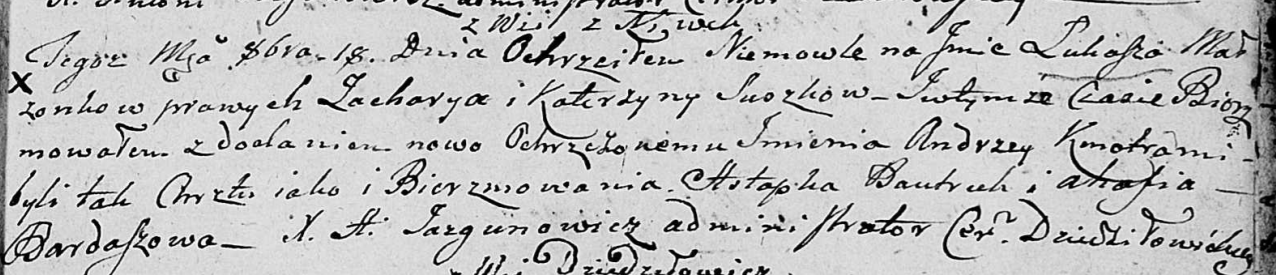 z Wsi z
Tegoż Mca 8bra. 18. Dnia Ochrzciłem Niemowle na Jmie Łukasza Mał
żonkow prawych Zacharya i Katerzyny Suszkow – I w tymże Czasie Bierz
mowałem z dodaniem nowo Ochrzczonemu Imienia Andrzey Kmotrami –
byli tak Chrztu iako i Bierzmowania. Astapka Bautruk i Ahafia –
Bardaszowa – X. A: Jazgunowicz administrator Cer. Dziedziłowickiey
z Wsi Dziedziłowicz